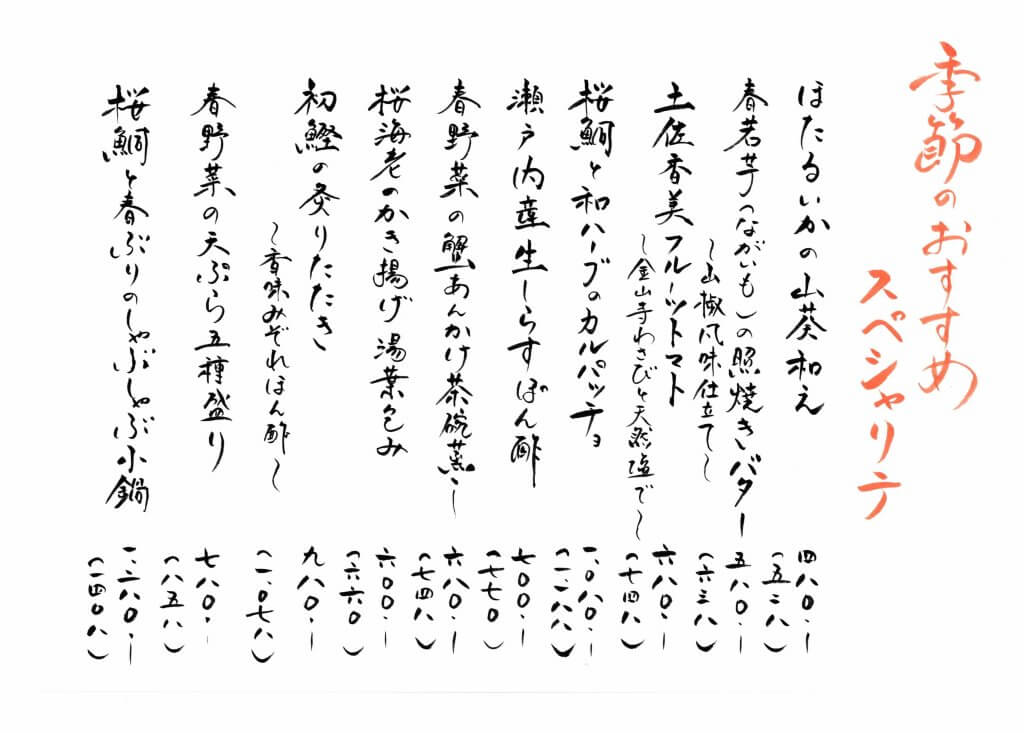 季節のおすすめ
スペシャリテ
ほたるいかの山葵和え 四八〇.ー
(五二八)
春若芋(ながいも)の照焼きバター 五八〇.ー
~山椒風味仕立て~ (六三八)
土佐香美フルーツトマト 六八〇.ー
~金山寺わさびと天然塩で~ (七四八)
桜鯛と和ハーブのカルパッチョ 一、〇八〇.ー
(一、一八八)
瀬戸内産生しらすぽん酢 七〇〇.ー
(七七〇)
春野菜の蟹あんかけ茶碗蒸し 六八〇.ー
(七四八)
桜海老のかき揚げ湯葉包み 六〇〇.ー
(六六〇)
初鰹の炙りたたき 九八〇.ー
~香味みぞれぽん酢~ (一、〇七八)
春野菜の天ぷら五種盛り 七八〇.ー
(八五八)
桜鯛と春ぶりのしゃぶしゃぶ小鍋 一、二八〇.ー
(一四〇八)